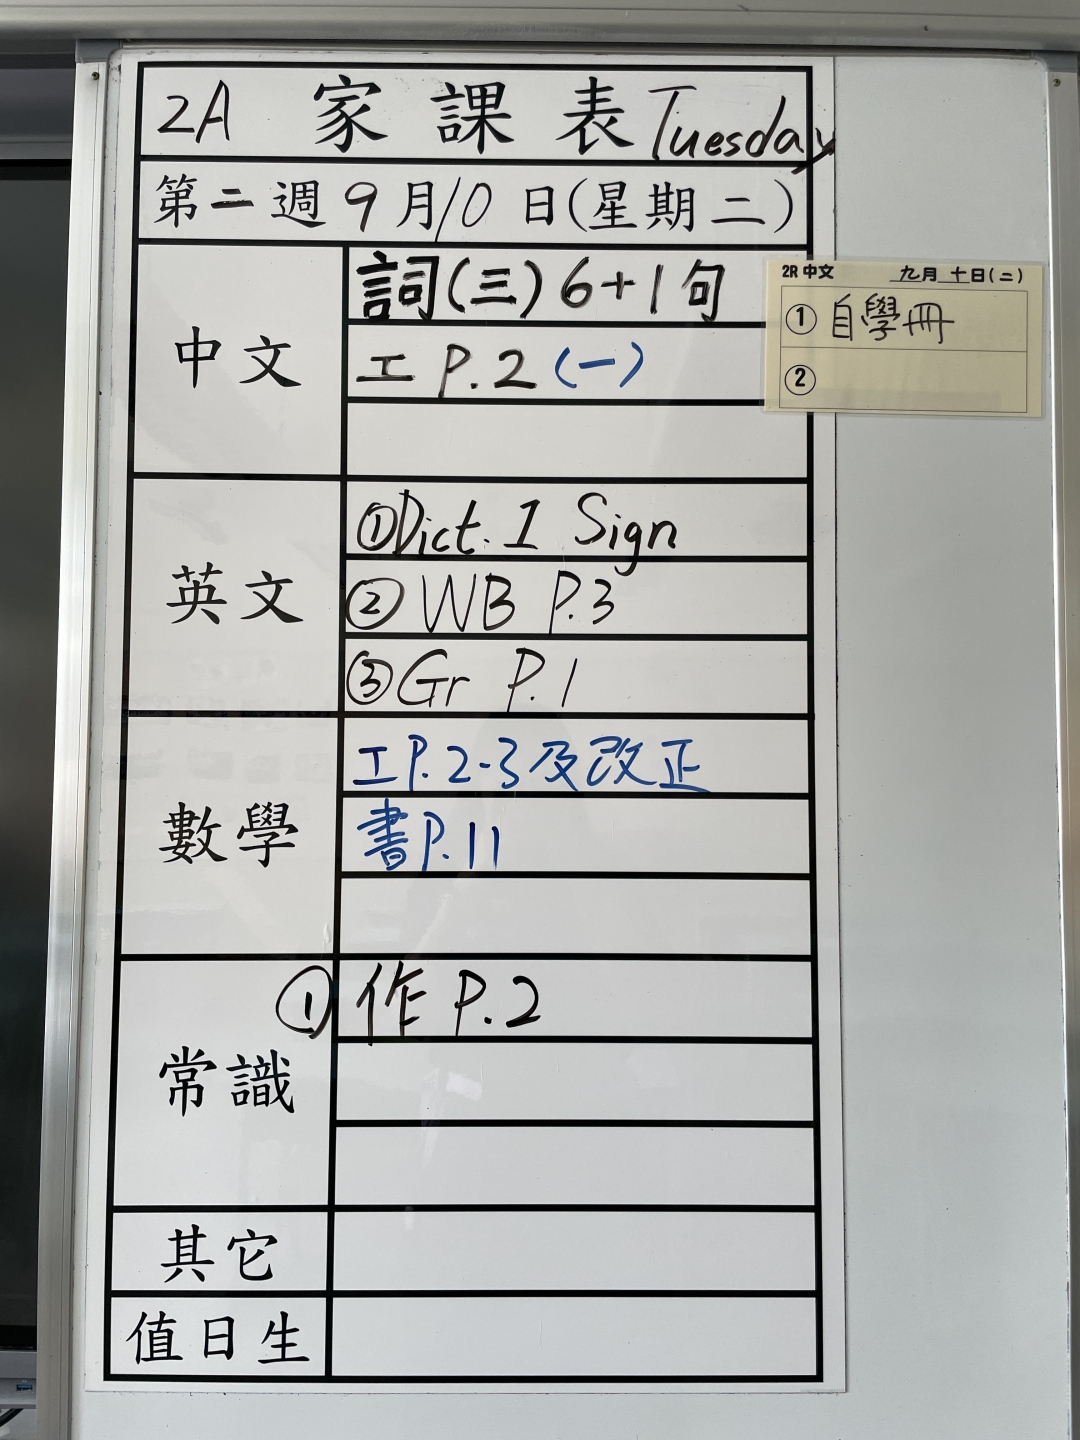 2A 家課表 Tuesday
第二週 9月10日(星期二)
中文
詞(三)6+1句
工 P.2 (一)
2R 中文 九月十日(二)
① 自學冊
②
英文
①Dict. 1 Sign
② WB P.3
③ Gr P.1
數學
工P.2-3及改正
書P.11
常識
① 作 P.2
其它
值日生